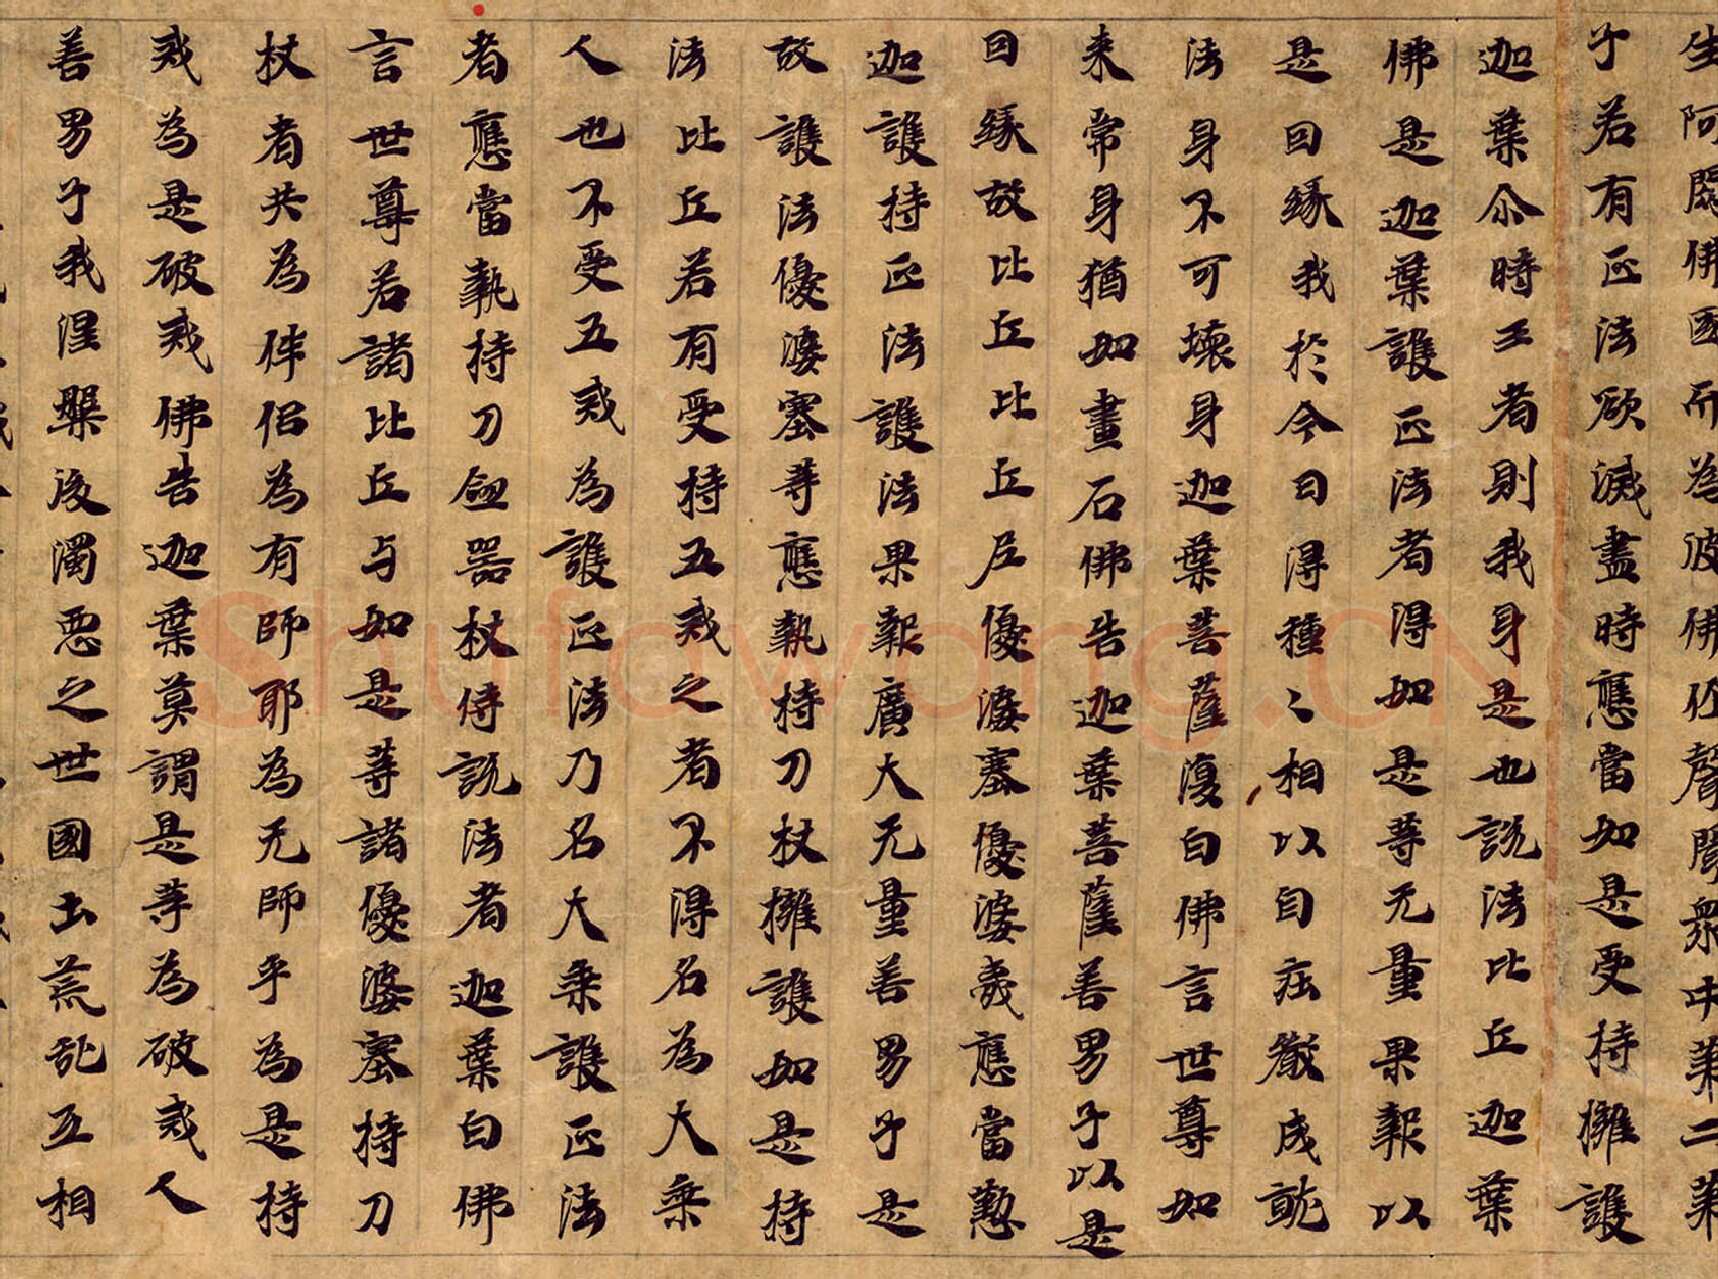 生阿閦佛國而為彼佛作聲聞衆中第二弟
子若有正法欲滅盡時應當如是受持擁護
迦葉尒時王者則我身是也説法比丘迦葉
佛是迦葉護正法者得如是等无量果報以
是因緣我於今日得種〻相以自莊嚴成就
法身不可壞身迦葉菩薩復白佛言世尊如
来常身猶如畫石佛告迦葉菩薩善男子以是
因緣故比丘比丘尼優婆塞優婆夷應當懃
迦護持正法護法果報廣大无量善男子是
故護法優婆塞等應執持刀杖擁護如是持
法比丘若有受持五戒之者不得名為大乗
人也不受五戒為護正法乃名大乗護正法
者應當執持刀劔器杖侍説法者迦葉白佛
言世尊若諸比丘与如是等諸優婆塞持刀
杖者共為伴侣為有師耶為无師乎為是持
戒為是破戒佛告迦葉莫謂是等為破戒人
善男子我涅槃後濁惡之世國土荒乱互相
Shufawang.CN